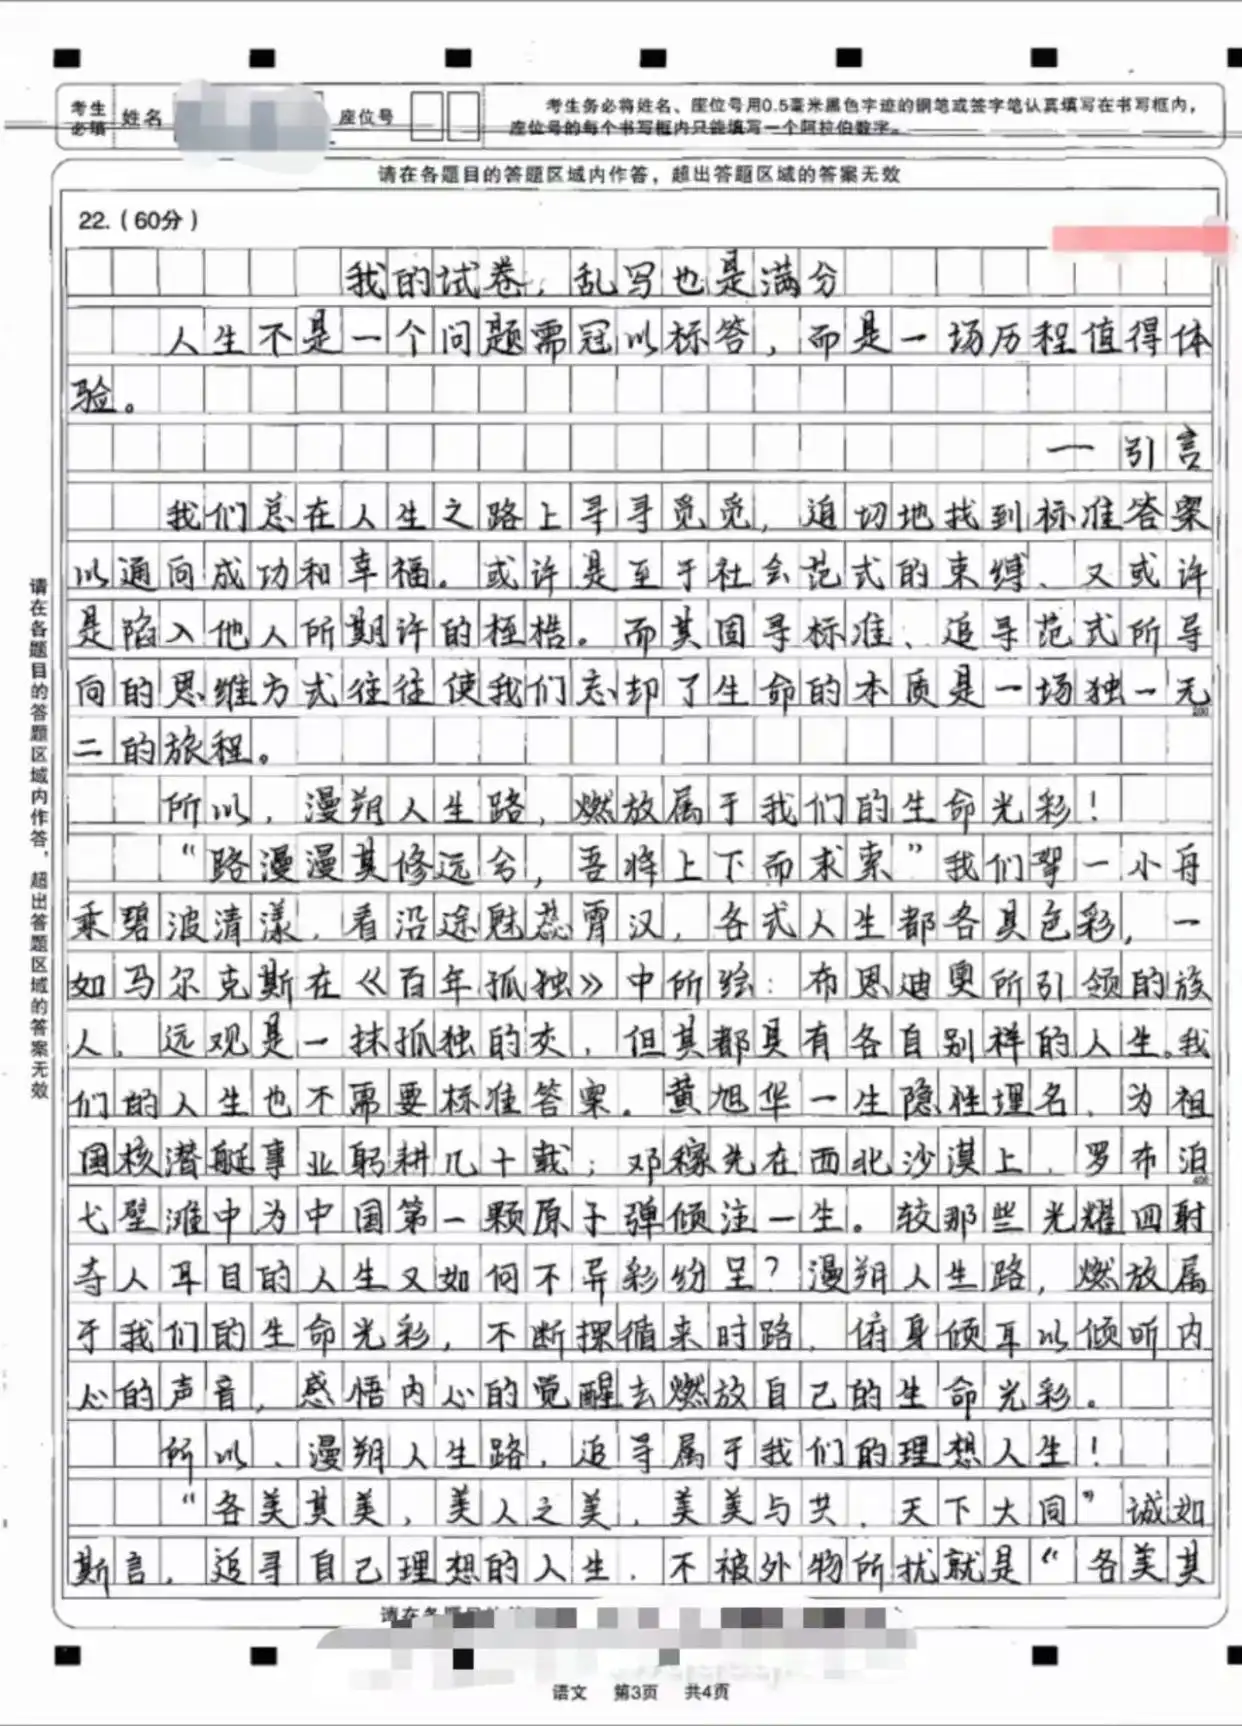 考生必填 姓名 座位号 考生务必将姓名、座位号用0.5毫米黑色字迹的钢笔或签字笔认真填写在书写框内，
座位号的每个书写框内只能填写一个阿拉伯数字。
请在各题目的答题区域内作答，超出答题区域的答案无效
22.（60分）
我的试卷，乱写也是满分
人生不是一个问题需冠以标答，而是一场历程值得体
验。
——引言
我们总在人生之路上寻寻觅觅，迫切地找到标准答案
以通向成功和幸福。或许是至于社会范式的束缚、又或许
是陷入他人所期许的桎梏。而其固寻标准、追寻范式所导
向的思维方式往往使我们忘却了生命的本质是一场独一无
200
二的旅程。
所以，漫朔人生路，燃放属于我们的生命光彩！
“路漫漫其修远兮，吾将上下而求索”我们掌一小舟
乘碧波清漾，看沿途魅蕊霄汉，各式人生都各具色彩，一
如马尔克斯在《百年孤独》中所绘：布恩迪奥所引领的族
人，远观是一抹孤独的灰，但其都具有各自别样的人生。我
们的人生也不需要标准答案。黄旭华一生隐姓埋名，为祖
国核潜艇事业躬耕几十载；邓稼先在西北沙漠上，罗布泊
400
戈壁滩中为中国第一颗原子弹倾注一生。较那些光耀四射
夺人耳目的人生又如何不异彩纷呈？漫朔人生路，燃放属
于我们的生命光彩，不断探循来时路，俯身倾耳以倾听内
心的声音，感悟内心的觉醒去燃放自己的生命光彩。
所以、漫朔人生路，追寻属于我们的理想人生！
“各美其美，美人之美，美美与共，天下大同”诚如
斯言，追寻自己理想的人生，不被外物所扰就是“各美其
请在各题目的答题区域内作答，超出答题区域的答案无效
语文 第3页 共4页